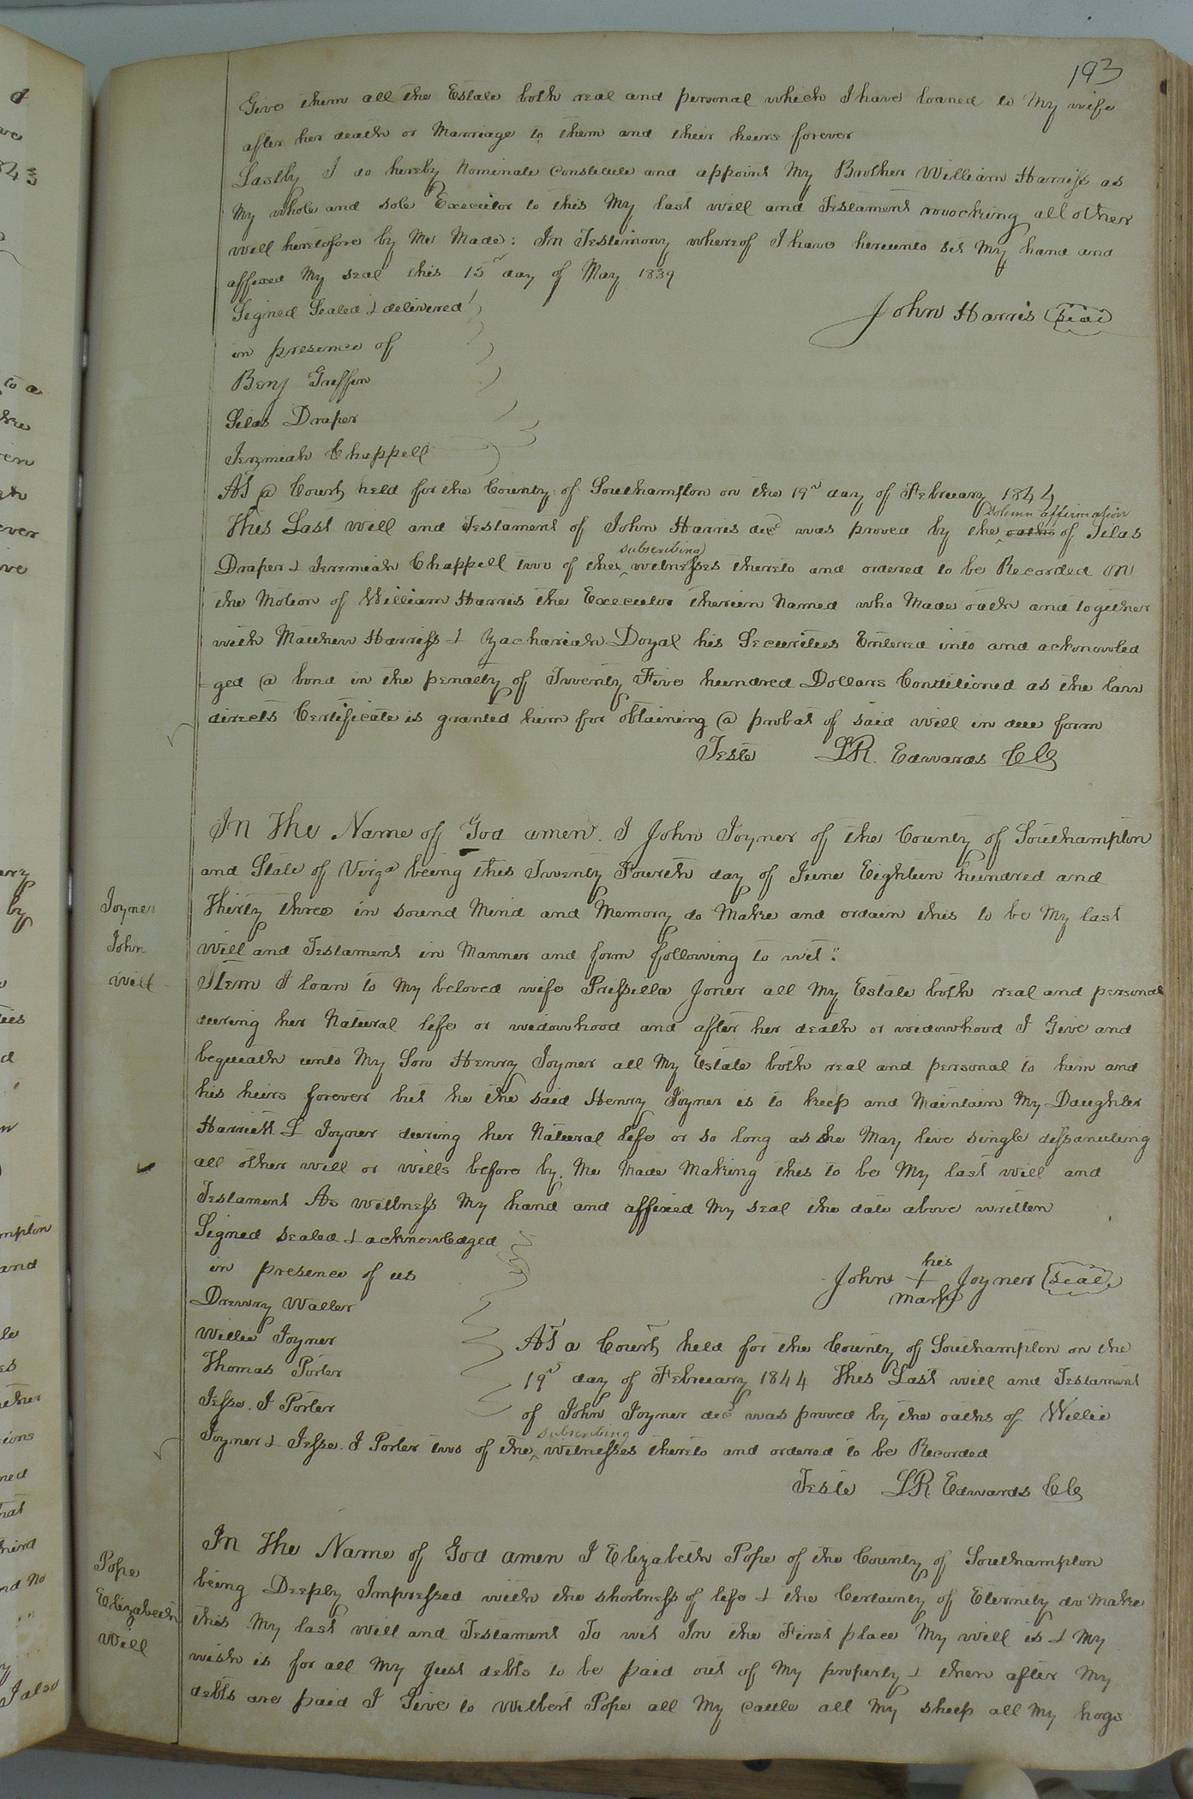 193
Give them all the Estate both real and personal which I have loaned to My wife
after her death or Marriage to them and their heirs forever
Lastly I do hereby Nominate constitute and appoint My Brother William Harriss as
My whole and sole Executor to this My last will and Testament revocking all other
will heretofore by Me Made: In Testimony whereof I have hereunto set My hand and
affixed My seal this 15th day of May 1839
Signed Sealed & delivered
John Harris (seal)
in presence of
Benj Griffin
Silas Draper
Jeremiah Chappell
At a Court held for the County of Southampton on the 19th day of February 1844
solemn affirmation
This Last will and Testament of John Harris decd was proved by the oaths of Silas
subscribing
Draper & Jeremiah Chappell two of the witnesses thereto and ordered to be Recorded on
the Motion of William Harris the Executor therein Named who Made oath and together
with Matthew Harriss & Zachariah Doyal his Securities Entered into and acknowled
ged a bond in the penalty of Twenty Five hundred Dollars Conditioned as the law
directs Certificate is granted him for obtaining a probat of said will in due form
Teste LR. Edwards CC
In The Name off God amen. I John Joyner of the County of Southampton
and State of Virga being this Twenty Fourth day of June Eighteen hundred and
Joyner
Thirty three in sound Mind and Memory do Make and ordain this to be My last
John
will and Testament in Manner and form following to wit:
will
Item I loan to My beloved wife Pressella Joner all My Estate both real and personal
during her Natural life or widowhood and after her death or widowhood I Give and
bequeath unto My Son Henry Joyner all My Estate both real and personal to him and
his heirs forever but he the said Henry Joyner is to keep and Maintain My Daughter
Harriett L Joyner during her Natural life or so long as she May live single dissanuling
all other will or wills before by Me Made Making this to be My last will and
Testament As wittness My hand and affixed My seal the date above written
Signed sealed & acknowledged
in presence of us
his
John + Joyner (seal)
mark
Drewry Waller
Willie Joyner
Thomas Porter
Jesse. J Porter
At a Court held for the County off Southampton on the
19th day of February 1844 This Last will and Testament
of John Joyner decd was proved by the oaths of Willie
subscribing
Joyner & Jesse. J Porter two of the witnesses thereto and ordered to be Recorded
Teste LR Edwards CC
In The Name of God amen I Elizabeth Pope of the County of Southampton
Pope
being Deeply Impressed with the shortness of life & the Certainty of Eternity do Make
Elizabeth
this My last will and Testament To wit In the First place My will is & My
Will
wish is for all My just debts to be paid out of My property & then after My
debts are paid I Give to Wilbert Pope all My cattle all My sheep all My hogs